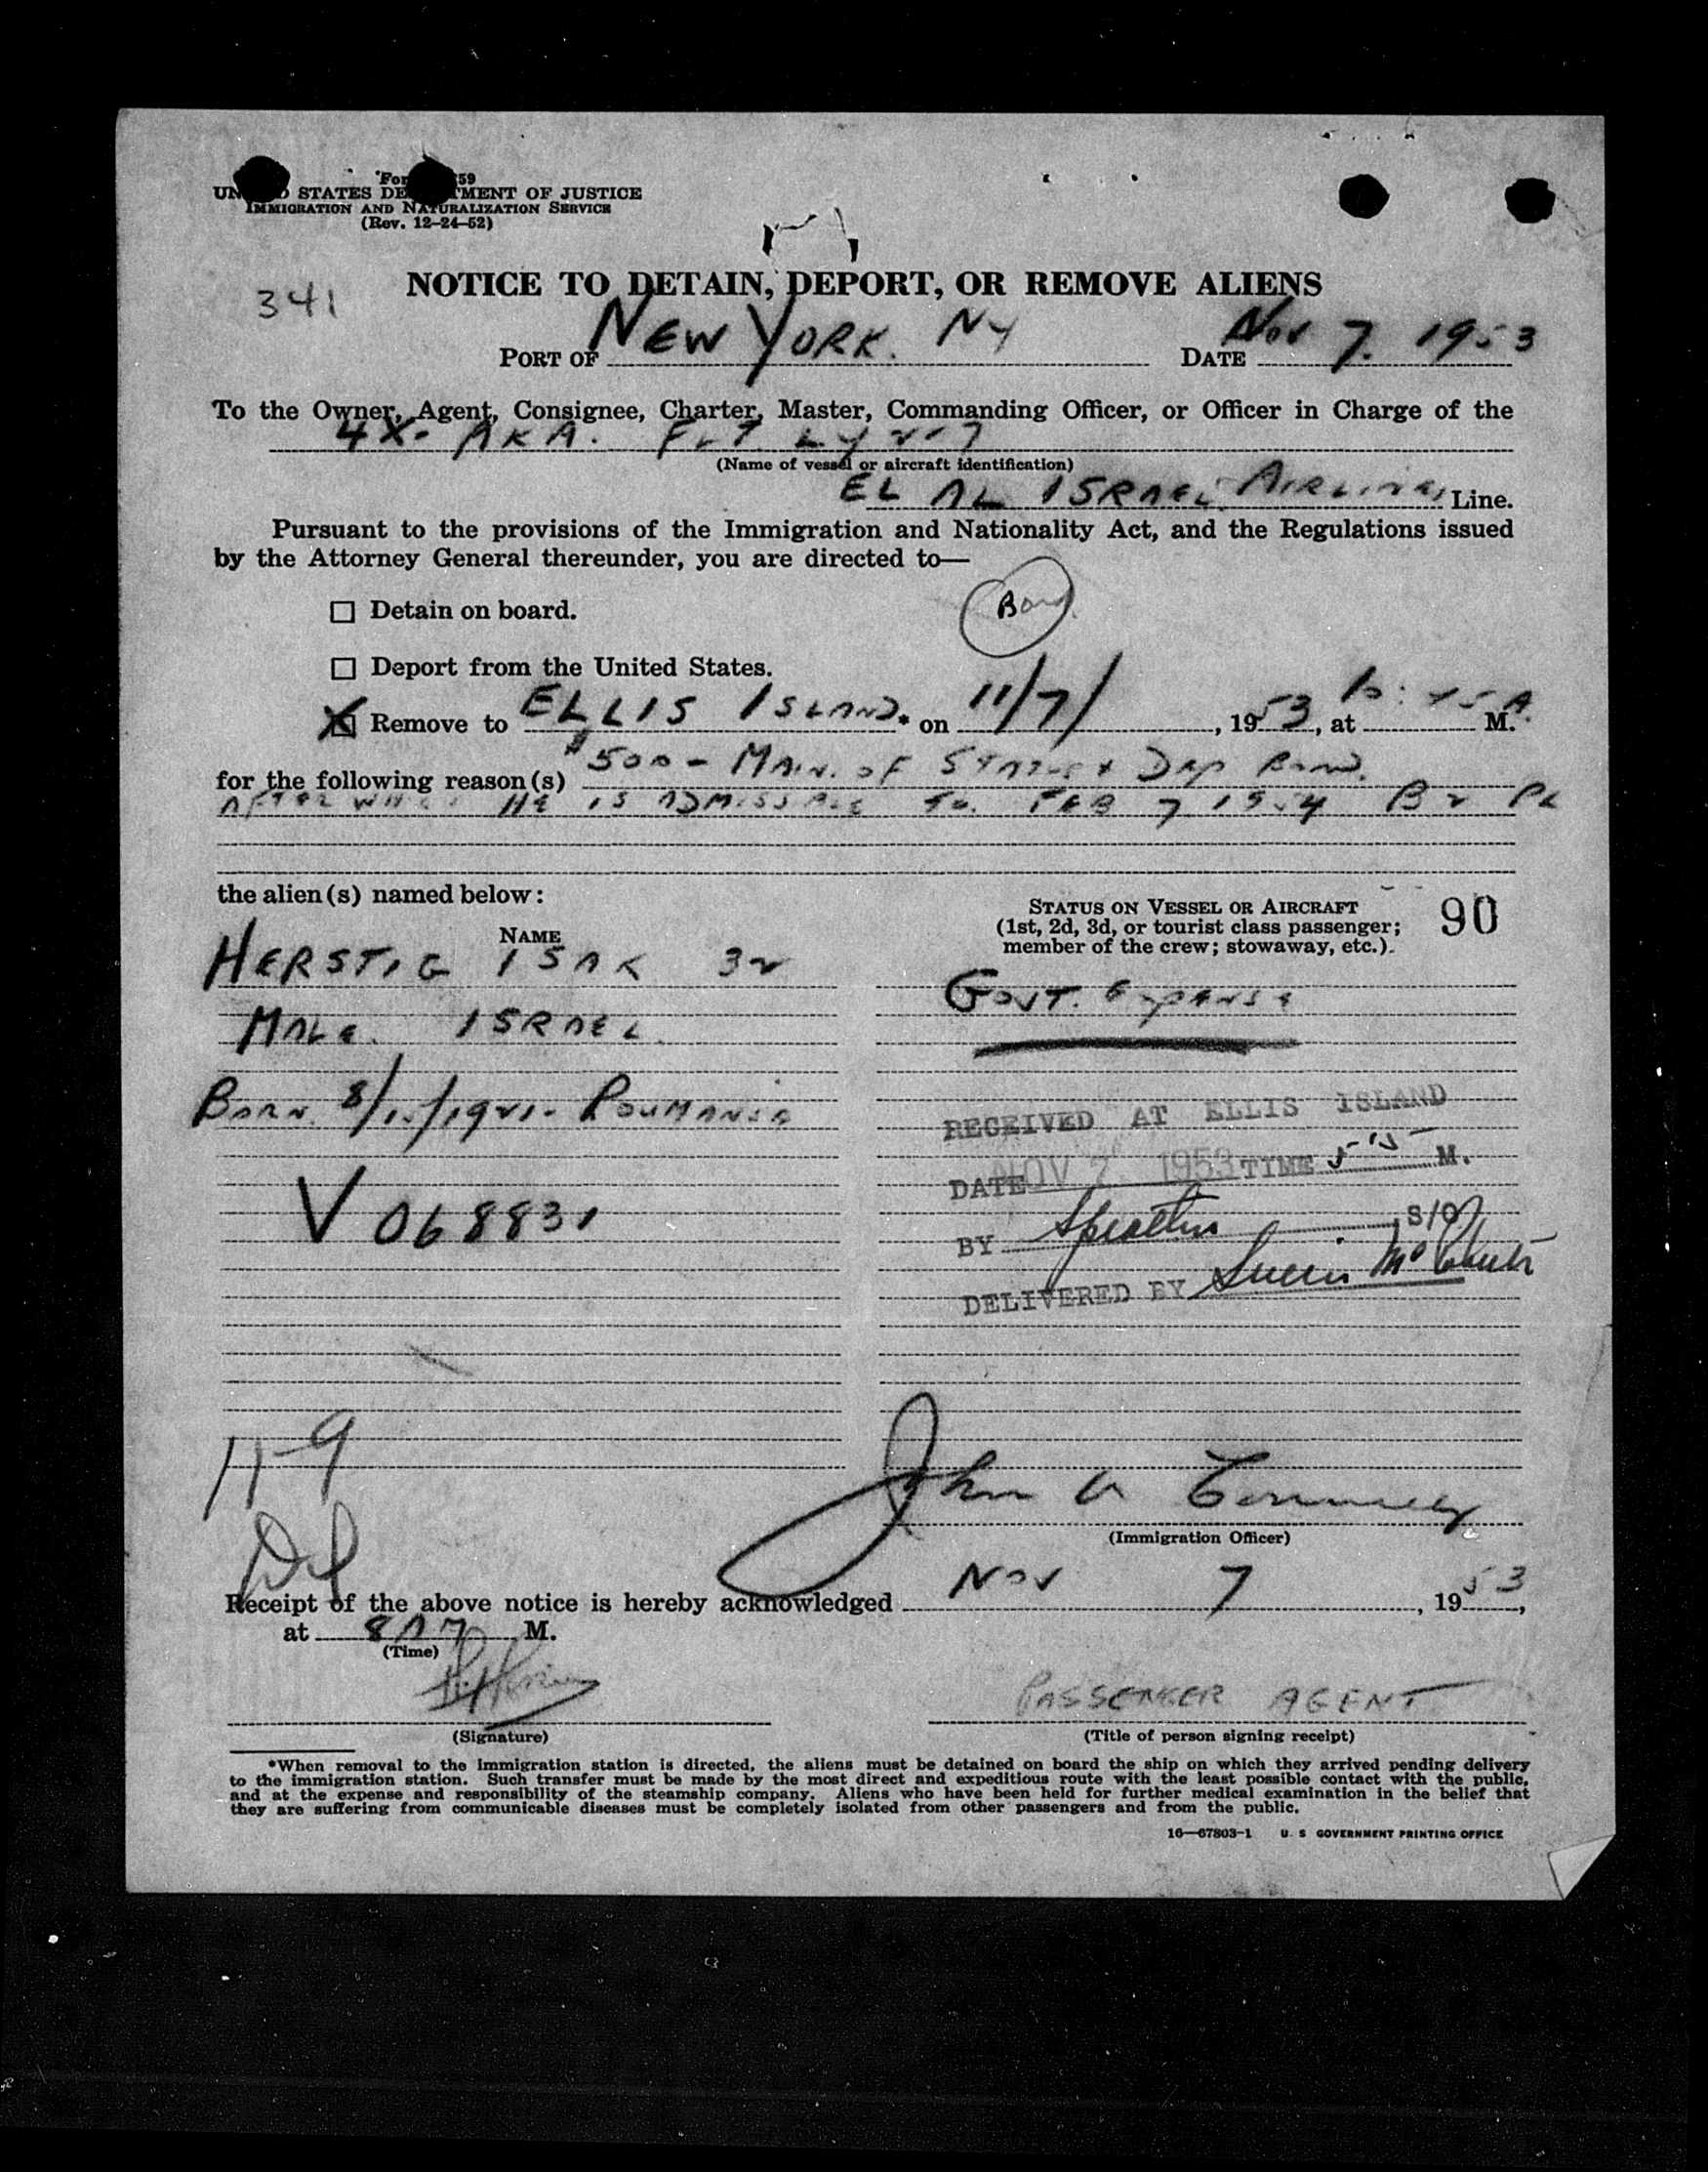 For 259
UNITED STATES DEPARTMENT OF JUSTICE
IMMIGRATION AND NATURALIZATION SERVICE
(Rev. 12-24-52)
341
NOTICE TO DETAIN, DEPORT, OR REMOVE ALIENS
PORT OF NEW YORK. NY DATE Nov 7. 1953
To the Owner, Agent, Consignee, Charter, Master, Commanding Officer, or Officer in Charge of the
4X- AKA. FLT LY
(Name of vessel or aircraft identification)
EL AL ISRAEL AIRLINES Line.
Pursuant to the provisions of the Immigration and Nationality Act, and the Regulations issued
by the Attorney General thereunder, you are directed to—
Bond
Detain on board.
Deport from the United States.
X Remove to ELLIS ISLAND* on 11/7/, 1953, at A. M.
for the following reason(s) $500 - MAIN. OF STATUS & DEP BOND.
AFTER WHICH HE IS ADMISSABLE TO FEB 7 1954 B2
the alien(s) named below:
STATUS ON VESSEL OR AIRCRAFT
(1st, 2d, 3d, or tourist class passenger;
member of the crew; stowaway, etc.).
90
NAME
HERSTIG ISAK 32
GOVT. Expense
MALE. ISRAEL
BORN. 8/ /1921- ROUMANIA
RECEIVED AT ELLIS ISLAND
DATE NOV 7 1953 TIME 5 15 M.
V 068831
BY , S/O
DELIVERED BY
11-9
John A Connolly
(Immigration Officer)
Receipt of the above notice is hereby acknowledged Nov 7, 1953,
at 8AM M.
(Time)
PASSENGER AGENT
(Signature)
(Title of person signing receipt)
*When removal to the immigration station is directed, the aliens must be detained on board the ship on which they arrived pending delivery
to the immigration station. Such transfer must be made by the most direct and expeditious route with the least possible contact with the public,
and at the expense and responsibility of the steamship company. Aliens who have been held for further medical examination in the belief that
they are suffering from communicable diseases must be completely isolated from other passengers and from the public.
16—67803-1 U. S GOVERNMENT PRINTING OFFICE